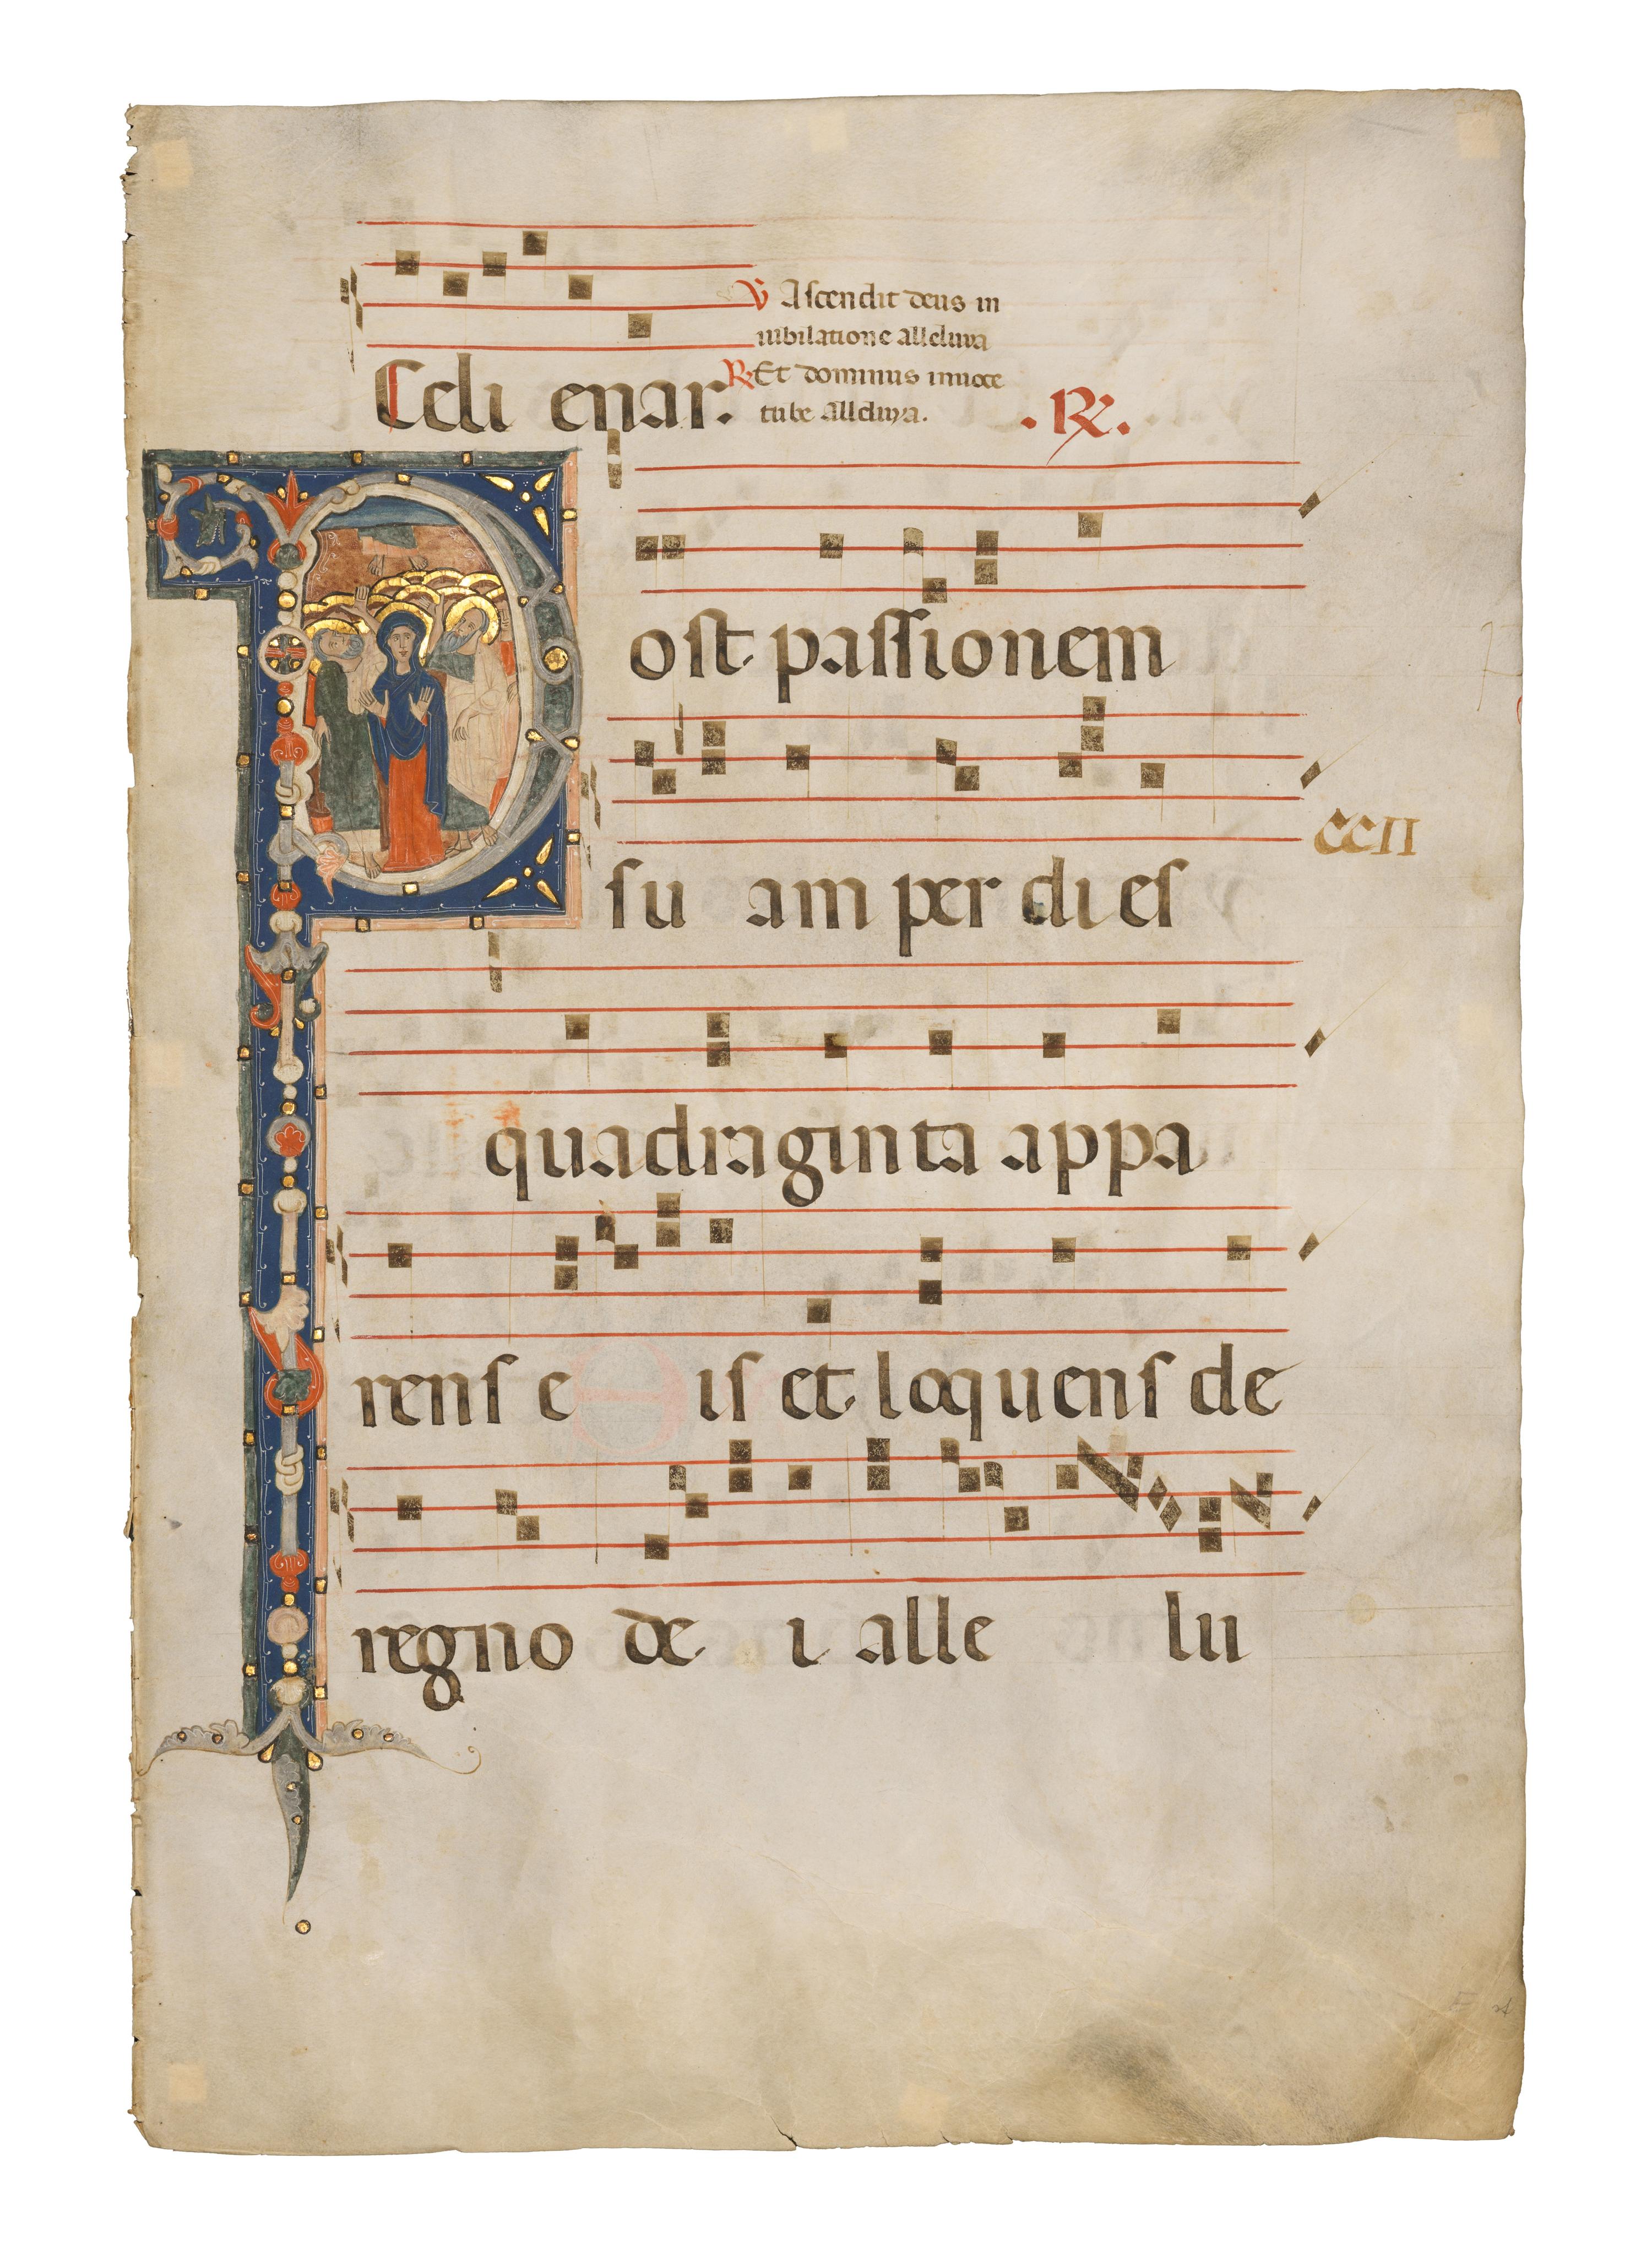 ℣ Ascendit deus in
iubilatione alleluya
Celi enar. ℟ Et dominus in uoce
tube alleluya. .℟.
Post passionem
su am per dies
CCII
quadraginta appa
rens e is et loquens de
regno de i alle lu